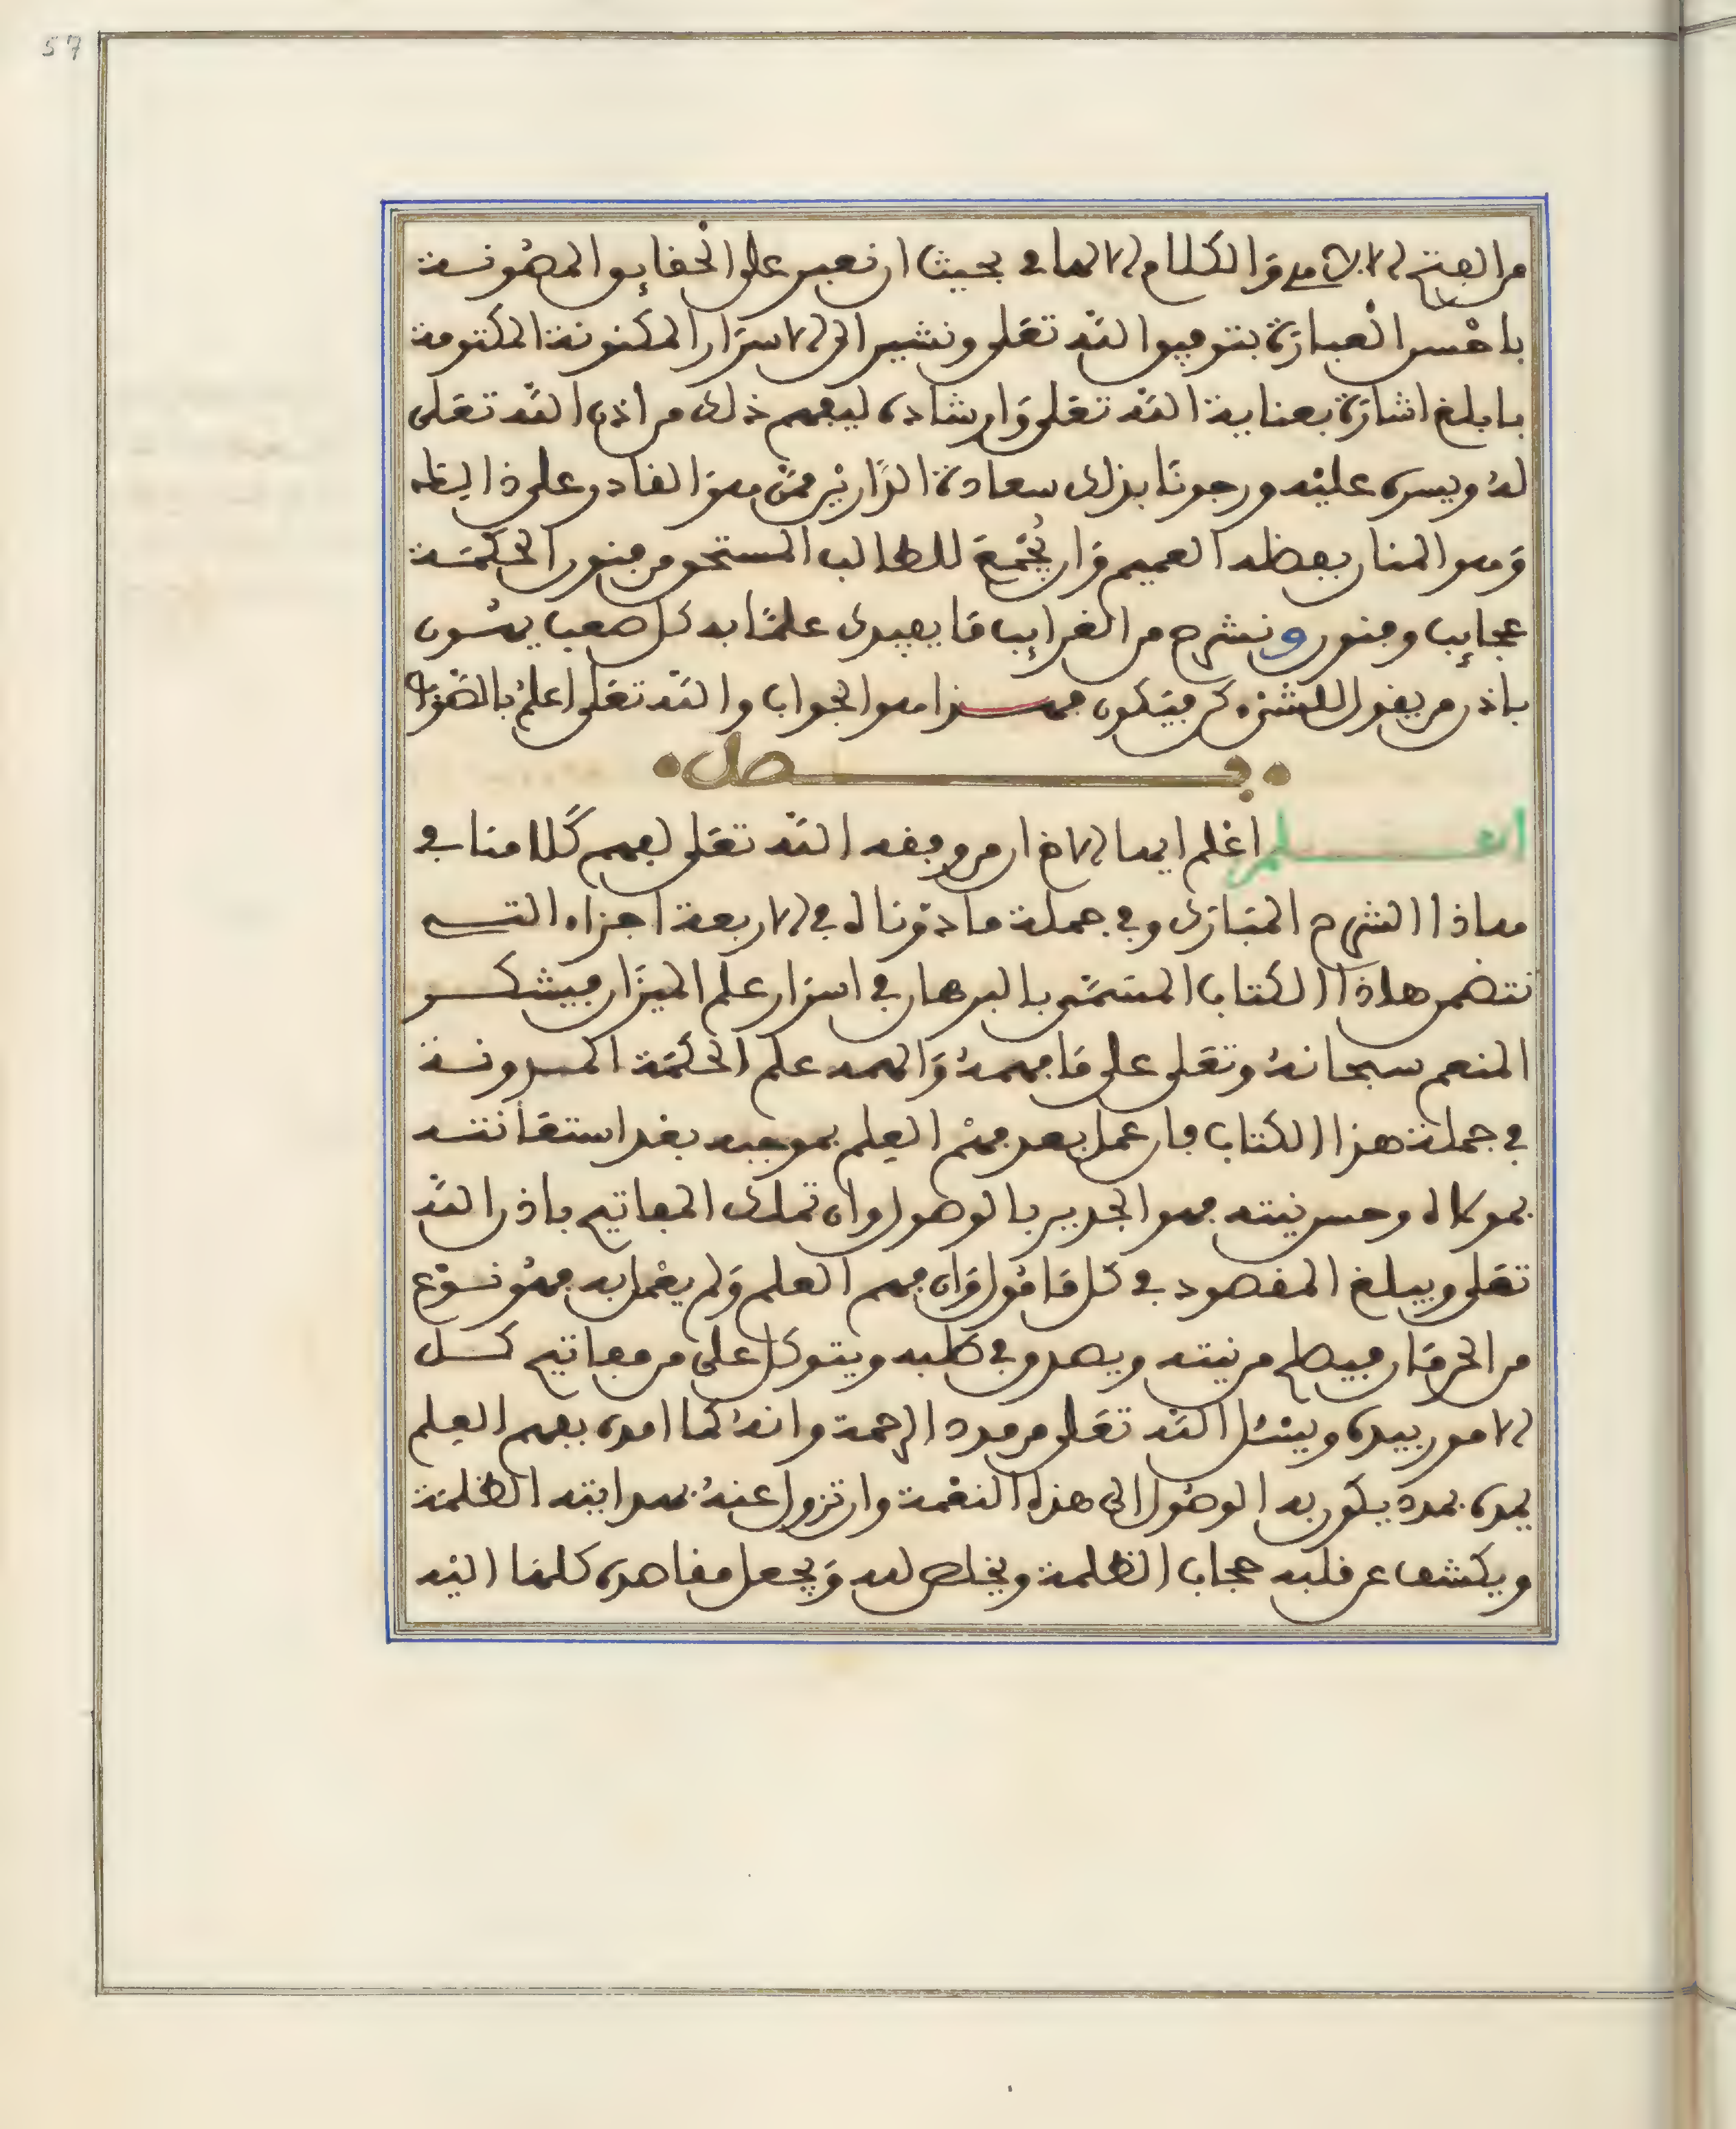 57
من الفتح الالاهي والكلام الالهامي بحيث ان نعبر على الحقايق المصونة
باحسن العبارة بتوفيق الله تعلى ونشير الى الاسرار المكنونة المكتومة
بابلغ اشارة بعناية الله تعلى وارشاده ليفهم ذلك من اذن الله تعلى
له ويسره عليه ورجونا بذلك سعادة الدارين ممن هو القادر على ذاليكه
وهو المنان بفضله العميم وان نجمع للطالب المستحق من فنون الحكمة
عجايب وفنون ونشرح من الغرايب ما يفيده علما به كل صعب يهون
باذن من يقول للشيء كن فيكون فهذا هو الجواب والله تعلى اعلم بالصواب
فصل
اعلم اعلم ايها الاخ ان من وفقه الله تعلى لفهم كلامنا في
هاذا الشرح المبارك وفي جملة ما دوناه في الاربعة اجزاء التي
تتضمن هاذا الكتاب المسمى بالبرهان في اسرار علم الميزان فيشكر
المنعم سبحانه وتعلى على ما فهمه والهمه علم الحكمة المدونة
في جملة هذا الكتاب فان عمل بعد فهم العلم بموجبه بعد استعانته
بمولاه وحسن نيته فهو الجدير بالوصول وان تملك المفاتيح باذن الله
تعلى ويبلغ المقصود في كل مامول وان فهم العلم ولم يعمل به فهو نوع
من الحرمان فيصلح من نيته ويصدق في طلبه ويتوكل على من مفاتيح كل
الامور بيده ويسئل الله تعلى من مدد الرحمة وانه كما امده بفهم العلم
يمده بمدد يكون به الوصول الى هذه النعمة وان تزول عنه بهدايته الظلمة
ويكشف عن قلبه حجاب الظلمة ويخلص لله ويجعل مقاصده كلها اليه